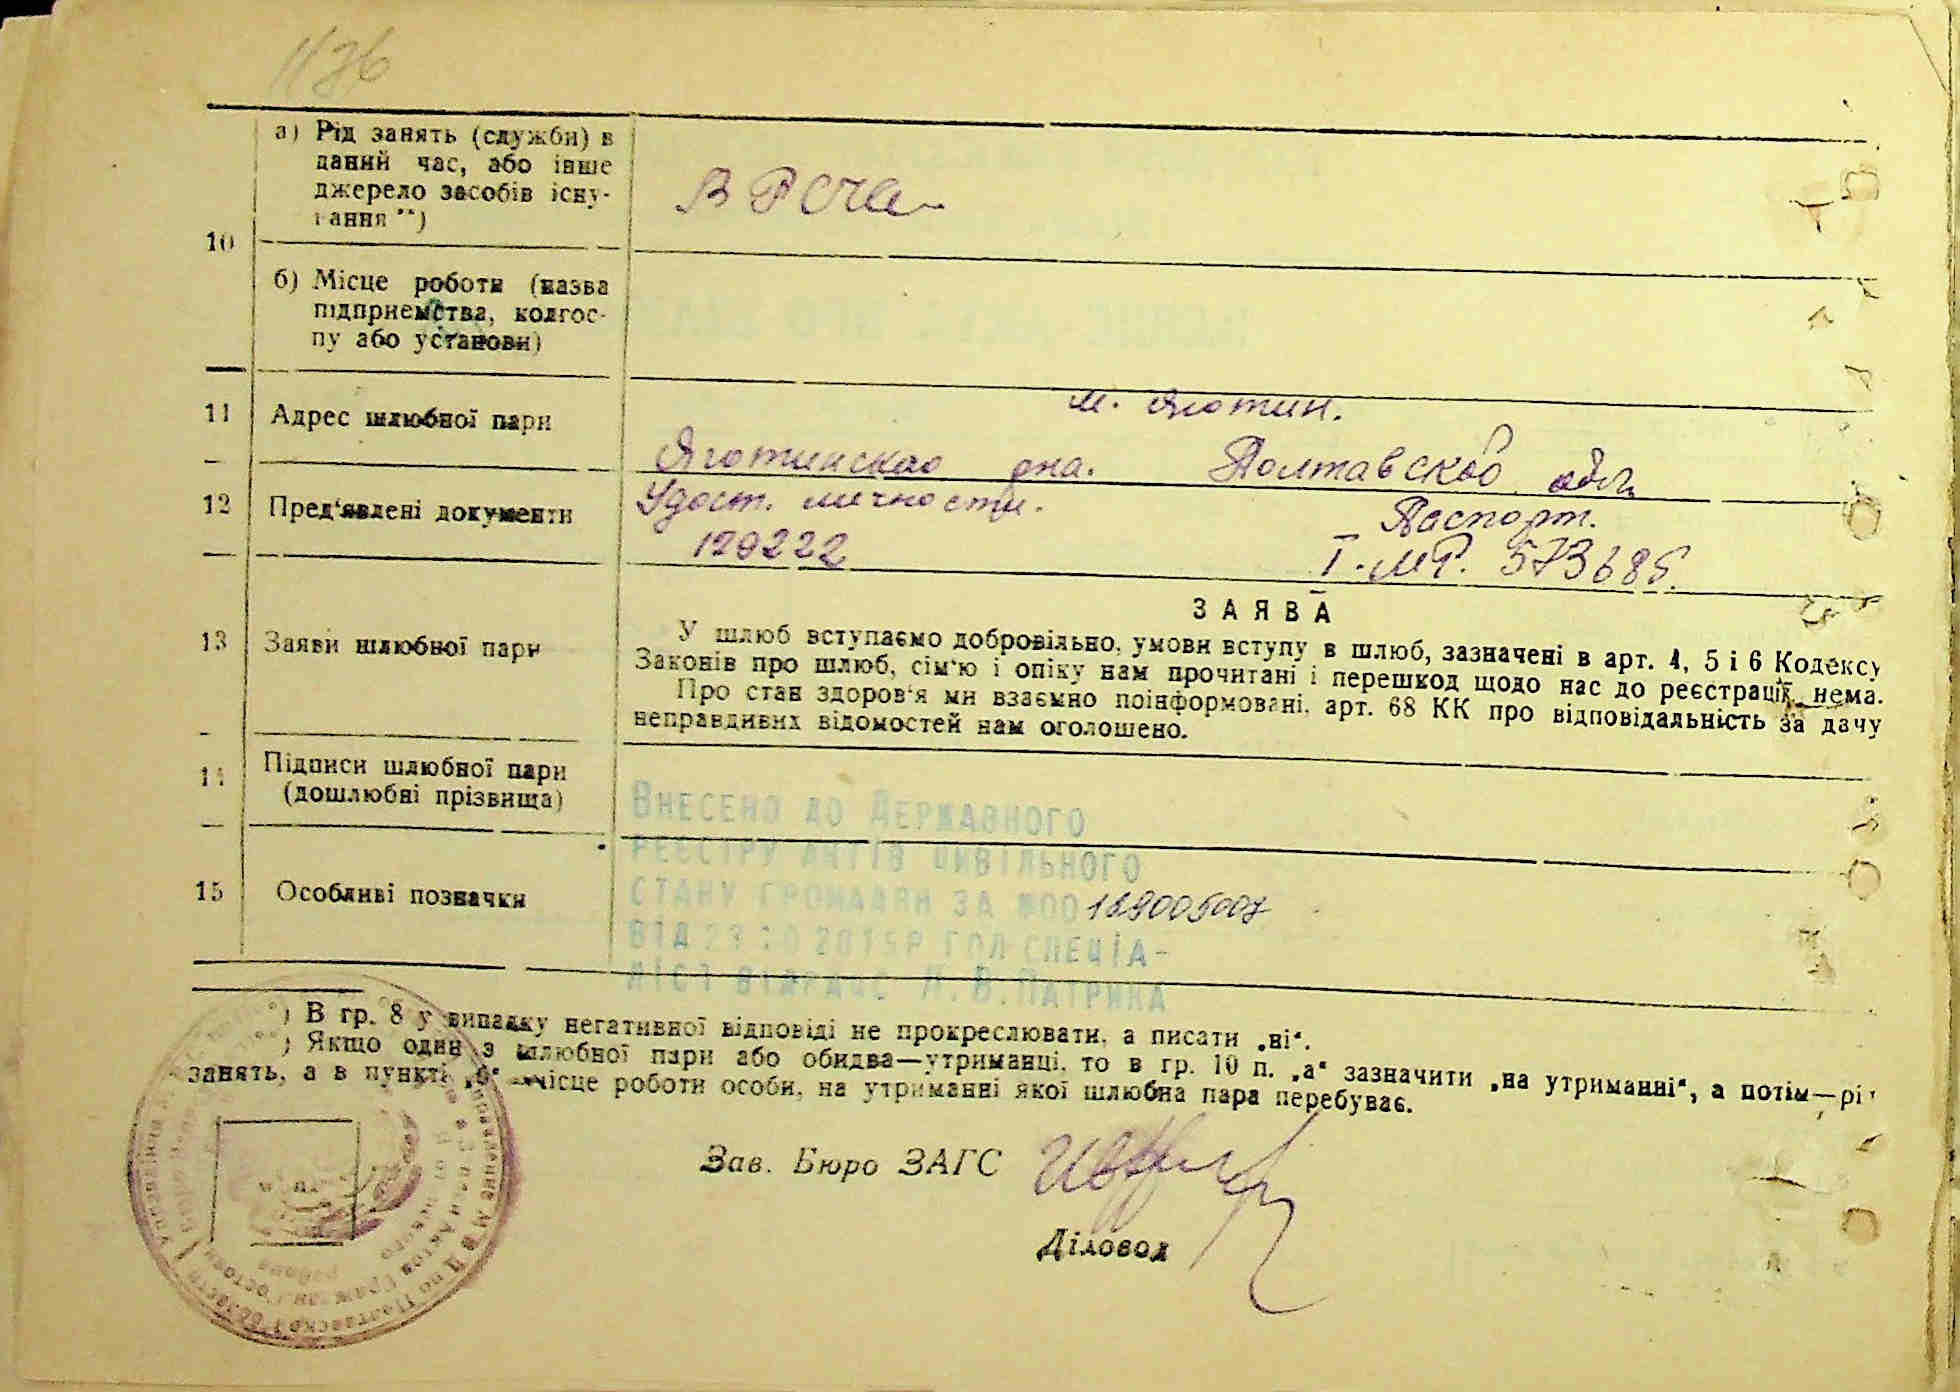 1176
а) Рід занять (служби) в
даний час, або інше
джерело засобів існу-
вання **)
10
б) Місце роботи (назва
підприємства, колгос-
пу або установи)
11 Адрес шлюбної пари
м. Яготин.
Яготинскао она. Полтавской обл
12 Пред'явлені документи
Удост. личности. Паспорт.
120222 І.МР. 573685.
ЗАЯВА
13 Заяви шлюбної пари
У шлюб вступаємо добровільно, умови вступу в шлюб, зазначені в арт. 4, 5 і 6 Кодексу
Законів про шлюб, сім'ю і опіку нам прочитані і перешкод щодо нас до реєстрації нема.
Про стан здоров'я ми взаємно поінформовані, арт. 68 КК про відповідальність за дачу
неправдивих відомостей нам оголошено.
14 Підписи шлюбної пари
(дошлюбні прізвища)
Внесено до Державного
реєстру актів цивільного
15 Особливі позначки
стану громадян за №00169005007
від 23 10 2015р гол спеціа-
ліст відрдцс Л.В.Патрика
*) В гр. 8 у випадку негативної відповіді не прокреслювати, а писати „ні“.
) Якщо один з шлюбної пари або обидва—утриманці, то в гр. 10 п. „а“ зазначити „на утриманні“, а потім—рі
занять, а в пункті „б“—місце роботи особи, на утриманні якої шлюбна пара перебуває.
Зав. Бюро ЗАГС
Діловод